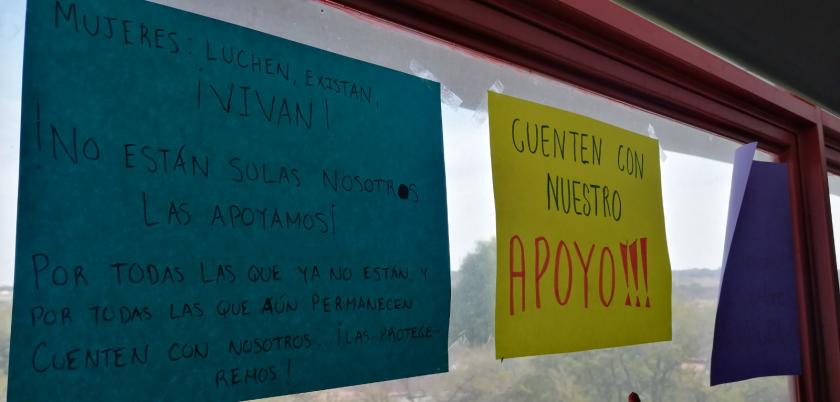 MUJERES: LUCHEN, EXISTAN,
¡VIVAN!
¡NO ESTÁN SOLAS. NOSOTROS
LAS APOYAMOS¡
POR TODAS LAS QUE YA NO ESTÁN, Y
POR TODAS LAS QUE AÚN PERMANECEN
CUENTEN CON NOSOTROS. ¡LAS PROTEGE-
REMOS!
CUENTEN CON
NUESTRO
APOYO!!!